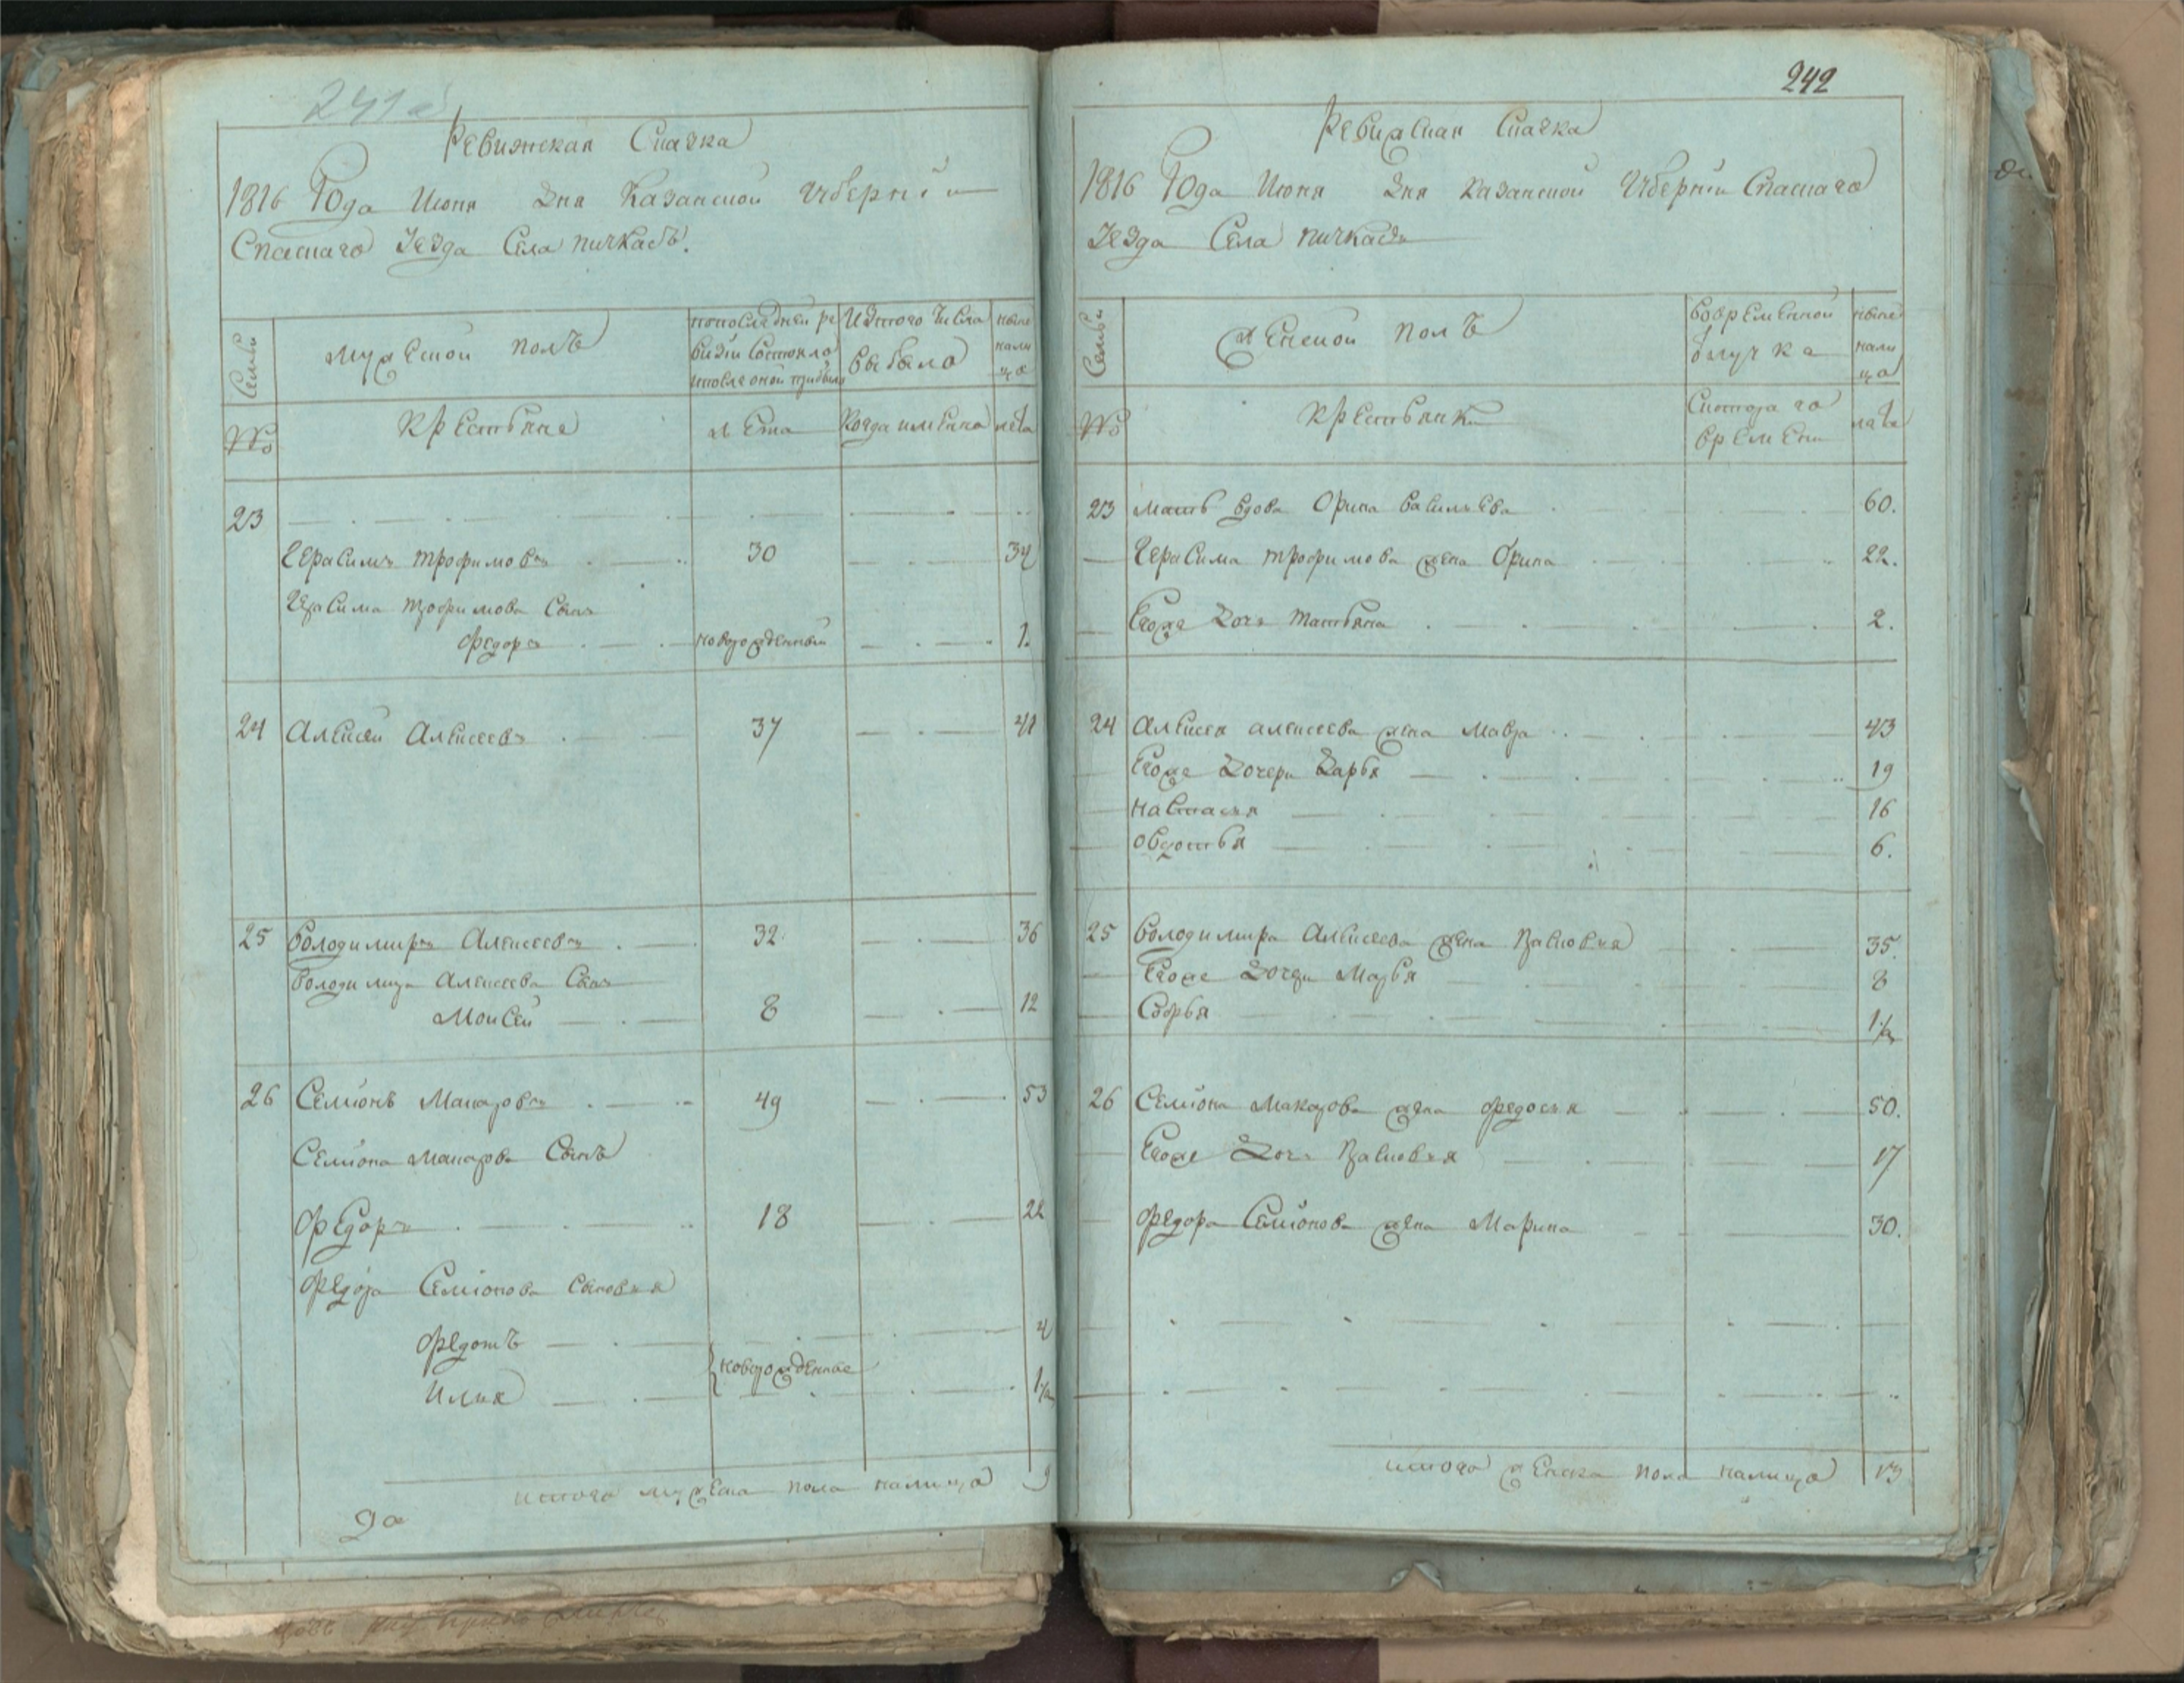 241 а
Ревижская Сказка
1816 Года Июня Дня Казанской Губерніи
Спаскаго Уезда Села Пичкасъ.
Семьи
Мужеской полъ
попоследней ре
визіи состояло
и после оной прибыло
Изтого числа
выбыло
ныне
нали
цо
№
Крестьяне
Лета
Когда имянно
лета
23
Герасимъ Трофимовъ 30 34
Герасима Трофимова Сынъ
Федоръ новорожденный 1.
24 Алексей Алексеевъ 37 41
25 Володимиръ Алексеевъ 32 36
Володимира Алексеева Сынъ
Моисей 8 12
26 Семіонъ Макаровъ 49 53
Семіона Макарова Сынъ
Федоръ 18 22
Федора Семіонова сыновья
Федотъ 4
новорожденные
Илья 1/2
итого мужеска пола налицо 9
242
Ревижская Сказка
1816 Года Июня Дня Казанской Губерніи Спаскаго
Уезда Села Пичкасъ
Семьи
Женской полъ
Вовременной
отлучке
ныне
нали
цо
№
Крестьянки
Скотораго
времени
лета
23 Мать вдова Орина Васильева 60.
Герасима Трофимова жена Орина 22.
Егоже Дочь Татьяна 2.
24 Алексея Алексеева жена Мавра 43
Егоже Дочери Дарья 19
Настасья 16
Овдотья 6.
25 Володимира Алексеева жена Прасковья 35.
Егоже Дочери Марья 8
Софья 1/2
26 Семіона Макарова жена Федосья 50.
Егоже Дочь Прасковья 17
Федора Семіонова жена Марина 30.
итого женска пола налицо 13